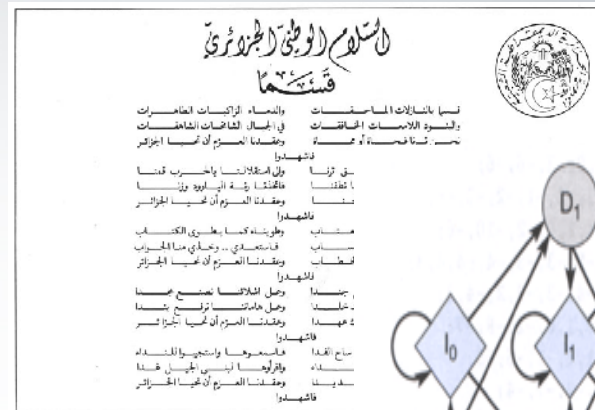 السّلام الوطنيّ الجزائريّ
قَسَمًا
قسما بالنازلات الماحقات والدماء الزاكيات الطاهرات
والبنود اللامعات الخافقات في الجبال الشامخات الشاهقات
نحن ثرنا فحياة أو ممات وعقدنا العزم أن تحيا الجزائر
فاشهدوا
ثرنا وإلى استقلالنا بالحرب قمنا
نطقنا فاتخذنا رنة البارود وزنا
وعقدنا العزم أن تحيا الجزائر
فاشهدوا
عتاب وطويناه كما يطوى الكتاب
ساب فاستعدي .. وخذي منا الجواب
خطاب وعقدنا العزم أن تحيا الجزائر
فاشهدوا
جندا وعلى أشلائنا نصنع مجدا
خلدا وعلى هاماتنا نرفع بندا
عهدا وعقدنا العزم أن تحيا الجزائر
فاشهدوا
ساح الفدا فاسمعوها واستجيبوا للنداء
داء واقرأوها لبني الجيل غدا
ديدنا وعقدنا العزم أن تحيا الجزائر
فاشهدوا
D1
I0 I1